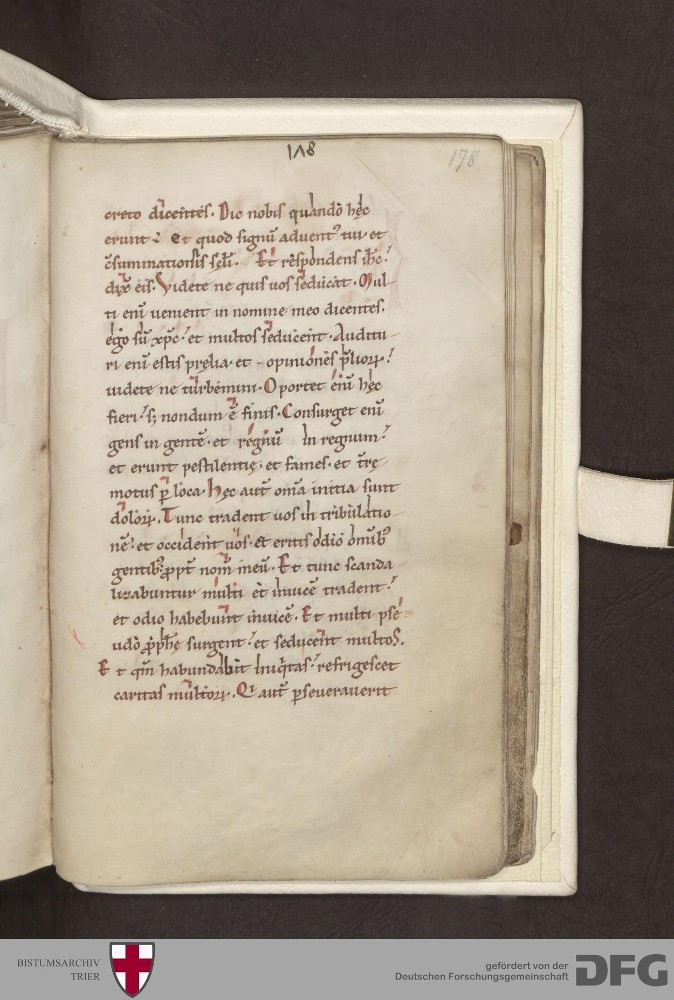 178
178
creto dicentes. Dic nobis quando hęc
erunt? Et quod signū aduent᷒ tui et
c̄summationis scłi. Et respondens ihc̄.
dix̄ eis. Videte ne quis uos seducat. Mul-
ti enī uenient in nomine meo dicentes.
ego sū xp̄c. et multos seducent. Auditu-
ri enī estis pręlia. et opiniones p̄lioꝝ.
uidete ne turbemini. Oportet enī hęc
fieri. sꝫ nondum ē finis. Consurget enī
gens in gentē. et regnū in regnum.
et erunt pestilentię. et fames. et t̄rę
motus ꝑ loca. Hęc aut̄ om̄a initia sunt
doloꝝ. Tunc tradent uos in tribulatio-
nē. et occident uos. Et eritis odio omīb᷒
gentib᷒ ꝓpt̄ nom̄ meū. Et tunc scanda-
lizabuntur multi et inuicē tradent.
et odio habebunt inuicē. Et multi pse-
udo ꝓphę surgent. et seducent multos.
Et qm̄ habundabit iniq̄tas. refrigescet
caritas multoꝝ. Qi aut̄ ꝑseuerauerit
BISTUMSARCHIV
TRIER
gefördert von der
Deutschen Forschungsgemeinschaft
DFG